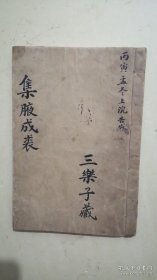 丙寅孟冬上浣告成
集腋成裘
三樂子藏